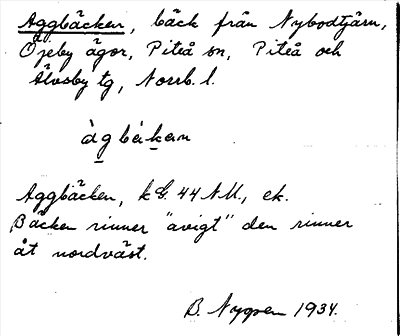 Aggbäcken, bäck från Nybodtjärn,
Öjeby ägor, Piteå sn, Piteå och
Älvsby tg, Norrb. l.
àgbèkan
Aggbäcken, k G. 44 NU., ek.
Bäcken rinner "avigt" den rinner
åt nordväst.
B. Nygren 1934.